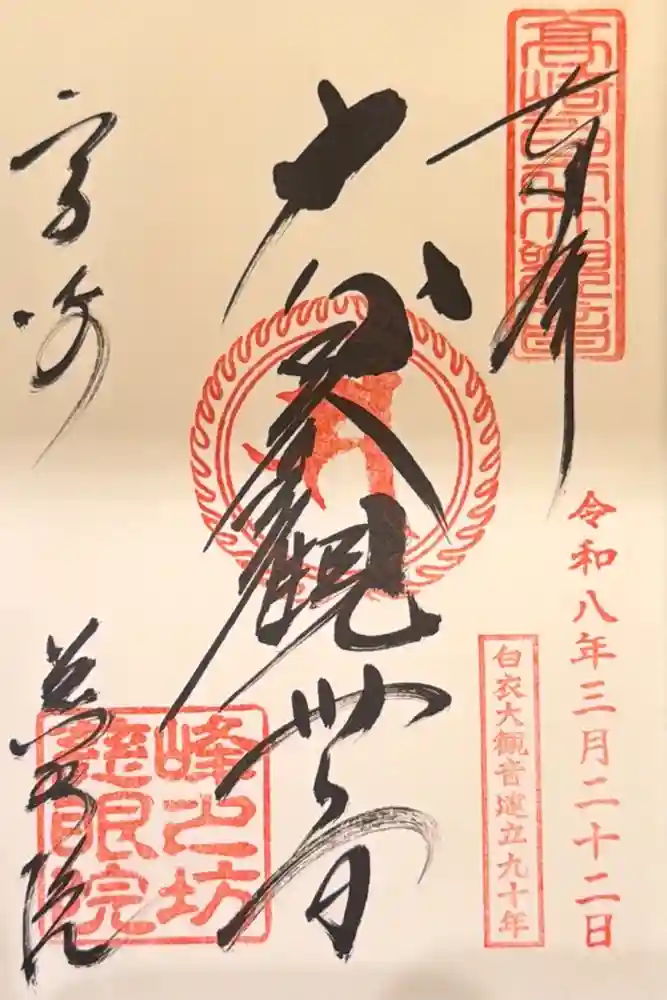 奉拝
高崎白衣大観音
令和八年三月二十二日
白衣大観音建立九十年
観世音
高崎
慈眼院
峰之坊
慈眼院